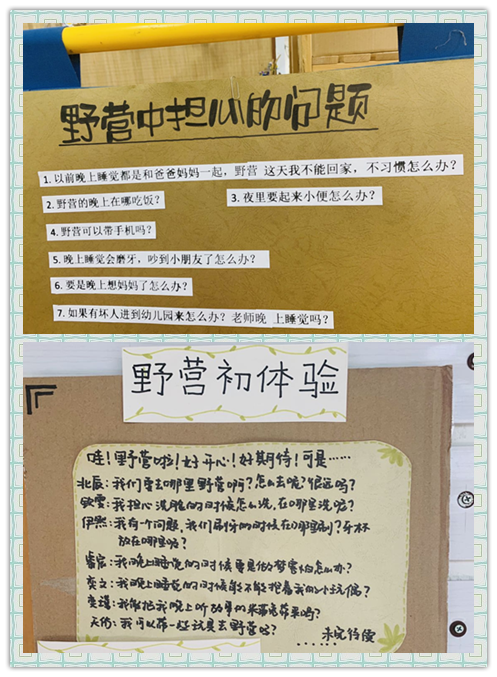 野营中担心的问题
1. 以前晚上睡觉都是和爸爸妈妈一起，野营 这天我不能回家，不习惯怎么办？
2. 野营的晚上在哪吃饭？
3. 夜里要起来小便怎么办？
4. 野营可以带手机吗？
5. 晚上睡觉会磨牙，吵到小朋友了怎么办？
6. 要是晚上想妈妈了怎么办？
7. 如果有坏人进到幼儿园来怎么办？老师晚 上睡觉吗？
野营初体验
哇！野营啦！好开心！好期待！可是……
北辰：我们要去哪里野营啊？怎么去呢？很远吗？
我担心洗脸的时候怎么洗，在哪里洗呢？
伊然：我有一个问题，我们刷牙的时候在哪里刷？牙杯
放在哪里呢？
我晚上睡觉的时候要是做梦害怕怎么办？
奕文：我晚上睡觉的时候能不能抱着我的小玩偶？
我能把我晚上听故事的米菲兔带来吗？
我可以带一些玩具去野营吗？
未完待续
……